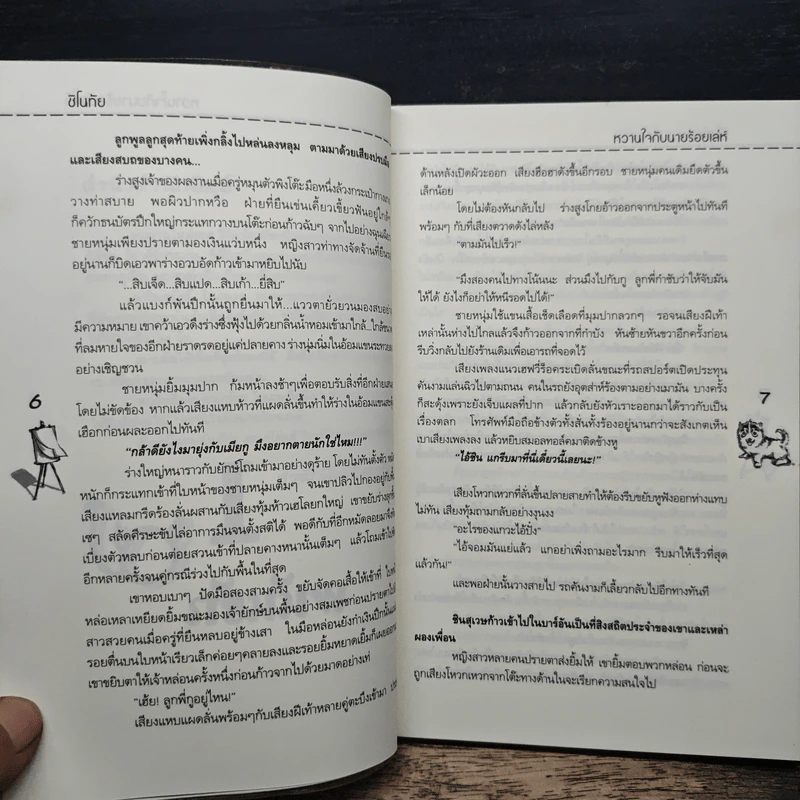 ชิโนทัย
ลูกพูลลูกสุดท้ายเพิ่งกลิ้งไปหล่นลงหลุม ตามมาด้วยเสียงปรบมือ
และเสียงสบถของบางคน...
ร่างสูงเจ้าของผลงานเมื่อครู่หมุนตัวพิงโต๊ะมือหนึ่งล้วงกระเป๋ากางเกง
วางท่าสบาย พอผิวปากหวือ ฝ่ายที่ยืนเข่นเคี้ยวเขี้ยวฟันอยู่ใกล้ๆ
ก็ควักธนบัตรปึกใหญ่กระแทกวางบนโต๊ะก่อนก้าวฉับๆ จากไปอย่างฉุนเฉียว
ชายหนุ่มเพียงปรายตามองเงินแว่บหนึ่ง หญิงสาวท่าทางจัดจ้านที่ยืน
อยู่นานก็บิดเอวพาร่างอวบอัดก้าวเข้ามาหยิบไปนับ
“...สิบเจ็ด...สิบแปด...สิบเก้า...ยี่สิบ”
แล้วแบงก์พันปึกนั้นถูกยื่นมาให้...แววตายั่วยวนมองสบอย่าง
มีความหมาย เขาคว้าเอวดึงร่างซึ่งฟุ้งไปด้วยกลิ่นน้ำหอมเข้ามาใกล้...ใกล้ขนาด
ที่ลมหายใจของอีกฝ่ายราดรดอยู่แค่ปลายคาง ร่างนุ่มนิ่มในอ้อมแขนระทวย
อย่างเชิญชวน
ชายหนุ่มยิ้มมุมปาก ก้มหน้าลงช้าๆเพื่อตอบรับสิ่งที่อีกฝ่ายเสนอ
โดยไม่ขัดข้อง หากแล้วเสียงแหบห้าวที่แผดลั่นขึ้นทำให้ร่างในอ้อมแขนสะดุ้ง
เฮือกก่อนผละออกไปทันที
“กล้าดียังไงมายุ่งกับเมียกู มึงอยากตายนักใช่ไหม!!!”
ร่างใหญ่หนาราวกับยักษ์โถมเข้ามาอย่างดุร้าย โดยไม่ทันตั้งตัว
หนักก็กระแทกเข้าที่ใบหน้าของชายหนุ่มเต็มๆ จนเขาปลิวไปกองอยู่กับพื้น
เสียงแหลมกรีดร้องลั่นผสานกับเสียงทุ้มห้าวเฮโลยกใหญ่ เขาขยับร่างลุก
เซๆ สลัดศีรษะขับไล่อาการมึนจนตั้งสติได้ พอดีกับที่อีกหมัดลอยมาจึง
เบี่ยงตัวหลบก่อนต่อยสวนเข้าที่ปลายคางหนานั้นเต็มๆ แล้วโถมเข้าใส่
อีกหลายครั้งจนคู่กรณีร่วงไปกับพื้นในที่สุด
เขาหอบเบาๆ ปัดมือสองสามครั้ง ขยับจัดคอเสื้อให้เข้าที่ ใบหน้า
หล่อเหลาเหยียดยิ้มขณะมองเจ้ายักษ์บนพื้นอย่างสมเพชก่อนปรายตา
สาวสวยคนเมื่อครู่ที่ยืนหลบอยู่ข้างเสา ในมือหล่อนยังกำเงินปึกนั้น
รอยตื่นบนใบหน้าเรียวเล็กค่อยๆคลายลงและรอยยิ้มหยาดเยิ้มก็เผยออก
เขาขยิบตาให้เจ้าหล่อนครั้งหนึ่งก่อนก้าวจากไปด้วยมาดอย่างเท่
“เฮ้ย! ลูกพี่กูอยู่ไหน!”
เสียงแหบแผดลั่นพร้อมๆกับเสียงฝีเท้าหลายคู่ตะบึงเข้ามา
6
หวานใจกับนายร้อยเล่ห์
ด้านหลังเปิดผัวะออก เสียงฮือฮาดังขึ้นอีกรอบ ชายหนุ่มคนเดิมยืดตัวขึ้น
เล็กน้อย
โดยไม่ต้องหันกลับไป ร่างสูงโกยอ้าวออกจากประตูหน้าไปทันที
พร้อมๆ กับที่เสียงตวาดดังไล่หลัง
“ตามมันไปเร็ว!”
“มึงสองคนไปทางโน้นนะ ส่วนมึงไปกับกู ลูกพี่กำชับว่าให้จับมัน
ให้ได้ ยังไงก็อย่าให้หนีรอดไปได้!”
ชายหนุ่มใช้แขนเสื้อเช็ดเลือดที่มุมปากลวกๆ รอจนเสียงฝีเท้า
เหล่านั้นห่างไปไกลแล้วจึงก้าวออกจากที่กำบัง หันซ้ายหันขวาอีกครั้งก่อน
รีบวิ่งกลับไปยังร้านเดิมเพื่อเอารถที่จอดไว้
เสียงเพลงแนวเฮฟวี่ร็อคระเบิดลั่นขณะที่รถสปอร์ตเปิดประทุน
คันงามแล่นฉิวไปตามถนน คนในรถยังอุตส่าห์ร้องตามอย่างเมามัน บางครั้ง
ก็สะดุ้งเพราะยังเจ็บแผลที่ปาก แล้วกลับยังหัวเราะออกมาได้ราวกับเป็น
เรื่องตลก โทรศัพท์มือถือข้างตัวทั้งสั่นทั้งร้องอยู่นานกว่าจะสังเกตเห็น
เบาเสียงเพลงลง แล้วหยิบสมอลทอล์คมาติดข้างหู
“ไอ้ชิน แกรีบมาที่นี่เดี๋ยวนี้เลยนะ!”
เสียงโหวกเหวกที่ลั่นขึ้นปลายสายทำให้ต้องรีบขยับหูฟังออกห่างแทบ
ไม่ทัน เสียงทุ้มถามกลับอย่างงุนงง
“อะไรของแกวะไอ้ปั่ง”
“ไอ้จอมมันแย่แล้ว แกอย่าเพิ่งถามอะไรมาก รีบมาให้เร็วที่สุด
แล้วกัน!”
และพอฝ่ายนั้นวางสายไป รถคันงามก็เลี้ยวกลับไปอีกทางทันที
ชินสุเวษก้าวเข้าไปในบาร์อันเป็นที่สิงสถิตประจำของเขาและเหล่า
ผองเพื่อน
หญิงสาวหลายคนปรายตาส่งยิ้มให้ เขายิ้มตอบพวกหล่อน ก่อนจะ
ถูกเสียงโหวกเหวกจากโต๊ะทางด้านในจะเรียกความสนใจไป
7